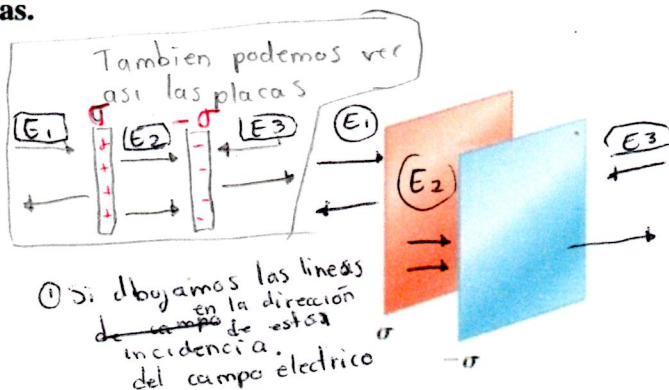 as.
Tambien podemos ver
asi las placas
σ
-σ
E1
E2
E3
+
+
+
+
+
-
-
-
-
-
E1
E2
E3
σ
-σ
① Si dbujamos las lineas
en la dirección
de campo de estos
incidencia.
del campo electrico